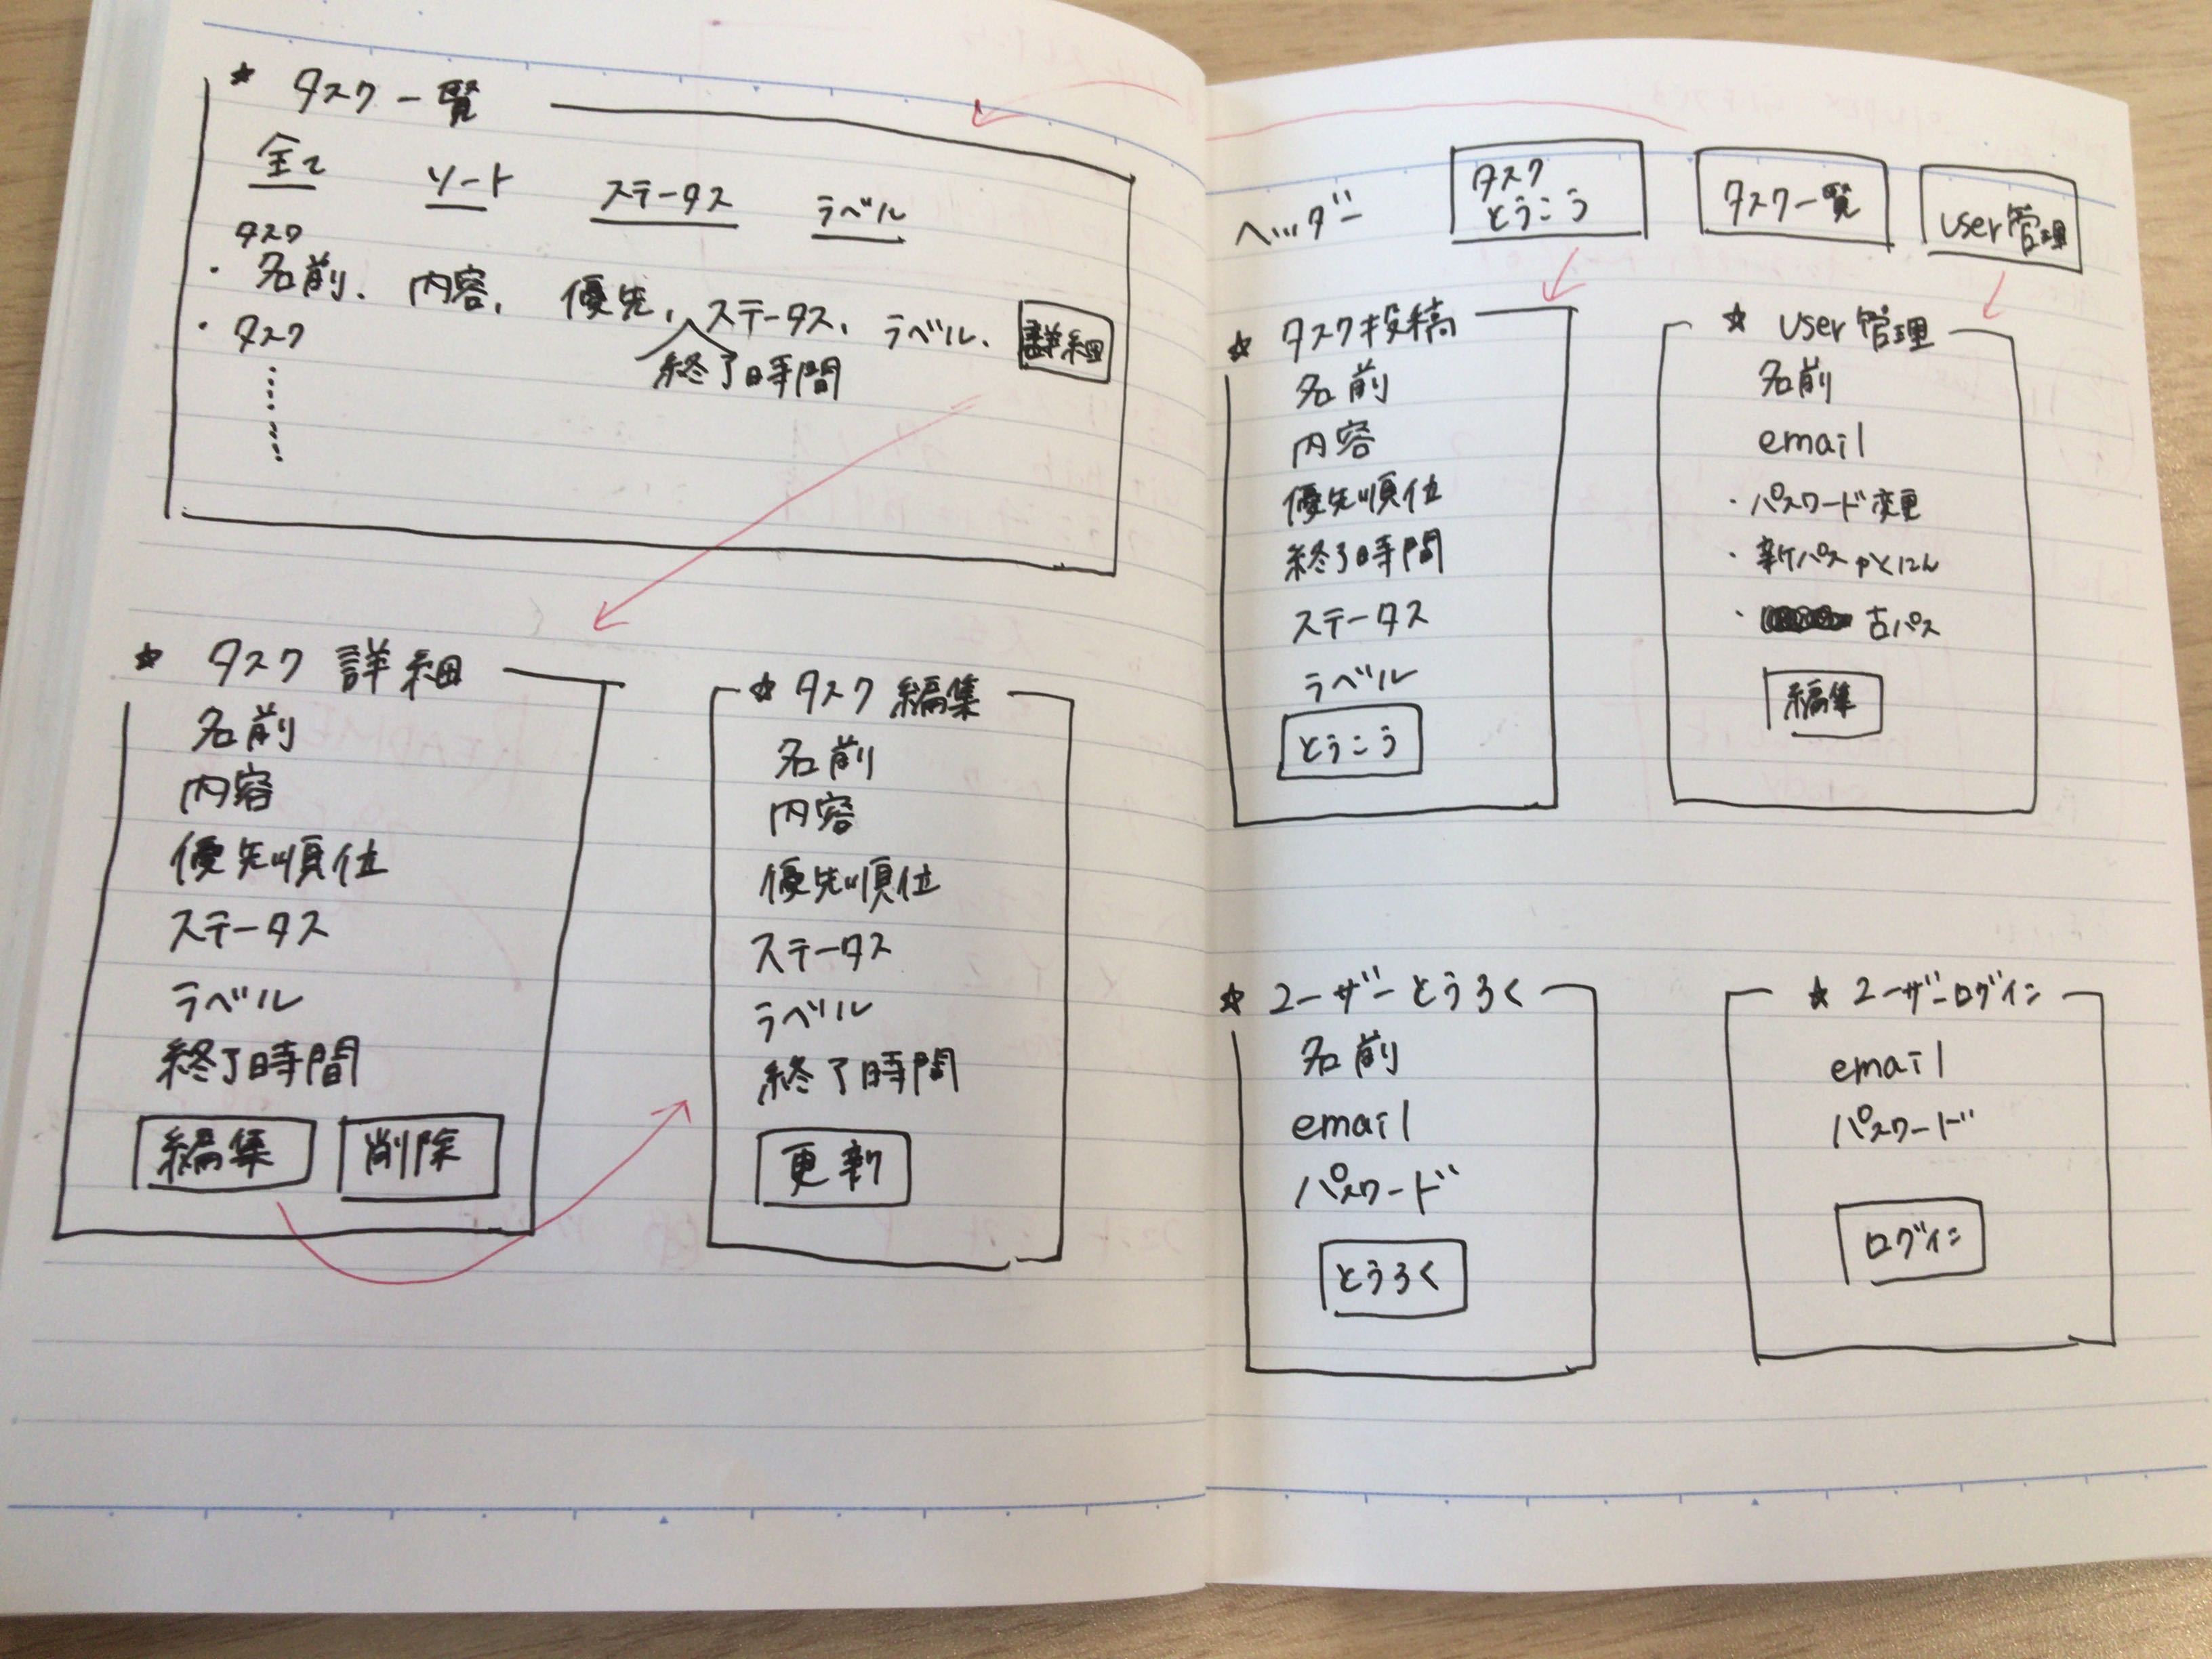 ☆ タスク一覧
全て ソート ステータス ラベル
タスク
・名前、内容、優先、ステータス、ラベル、 詳細
終了時間
・タスク
☆ タスク 詳細
名前
内容
優先順位
ステータス
ラベル
終了時間
編集 削除
☆ タスク 編集
名前
内容
優先順位
ステータス
ラベル
終了時間
更新
ヘッダー
タスク
とうこう
タスク一覧
user管理
☆ タスク投稿
名前
内容
優先順位
終了時間
ステータス
ラベル
とうこう
☆ user管理
名前
email
・パスワード変更
・新パスかくにん
・古パス
編集
☆ ユーザーとうろく
名前
email
パスワード
とうろく
☆ ユーザーログイン
email
パスワード
ログイン